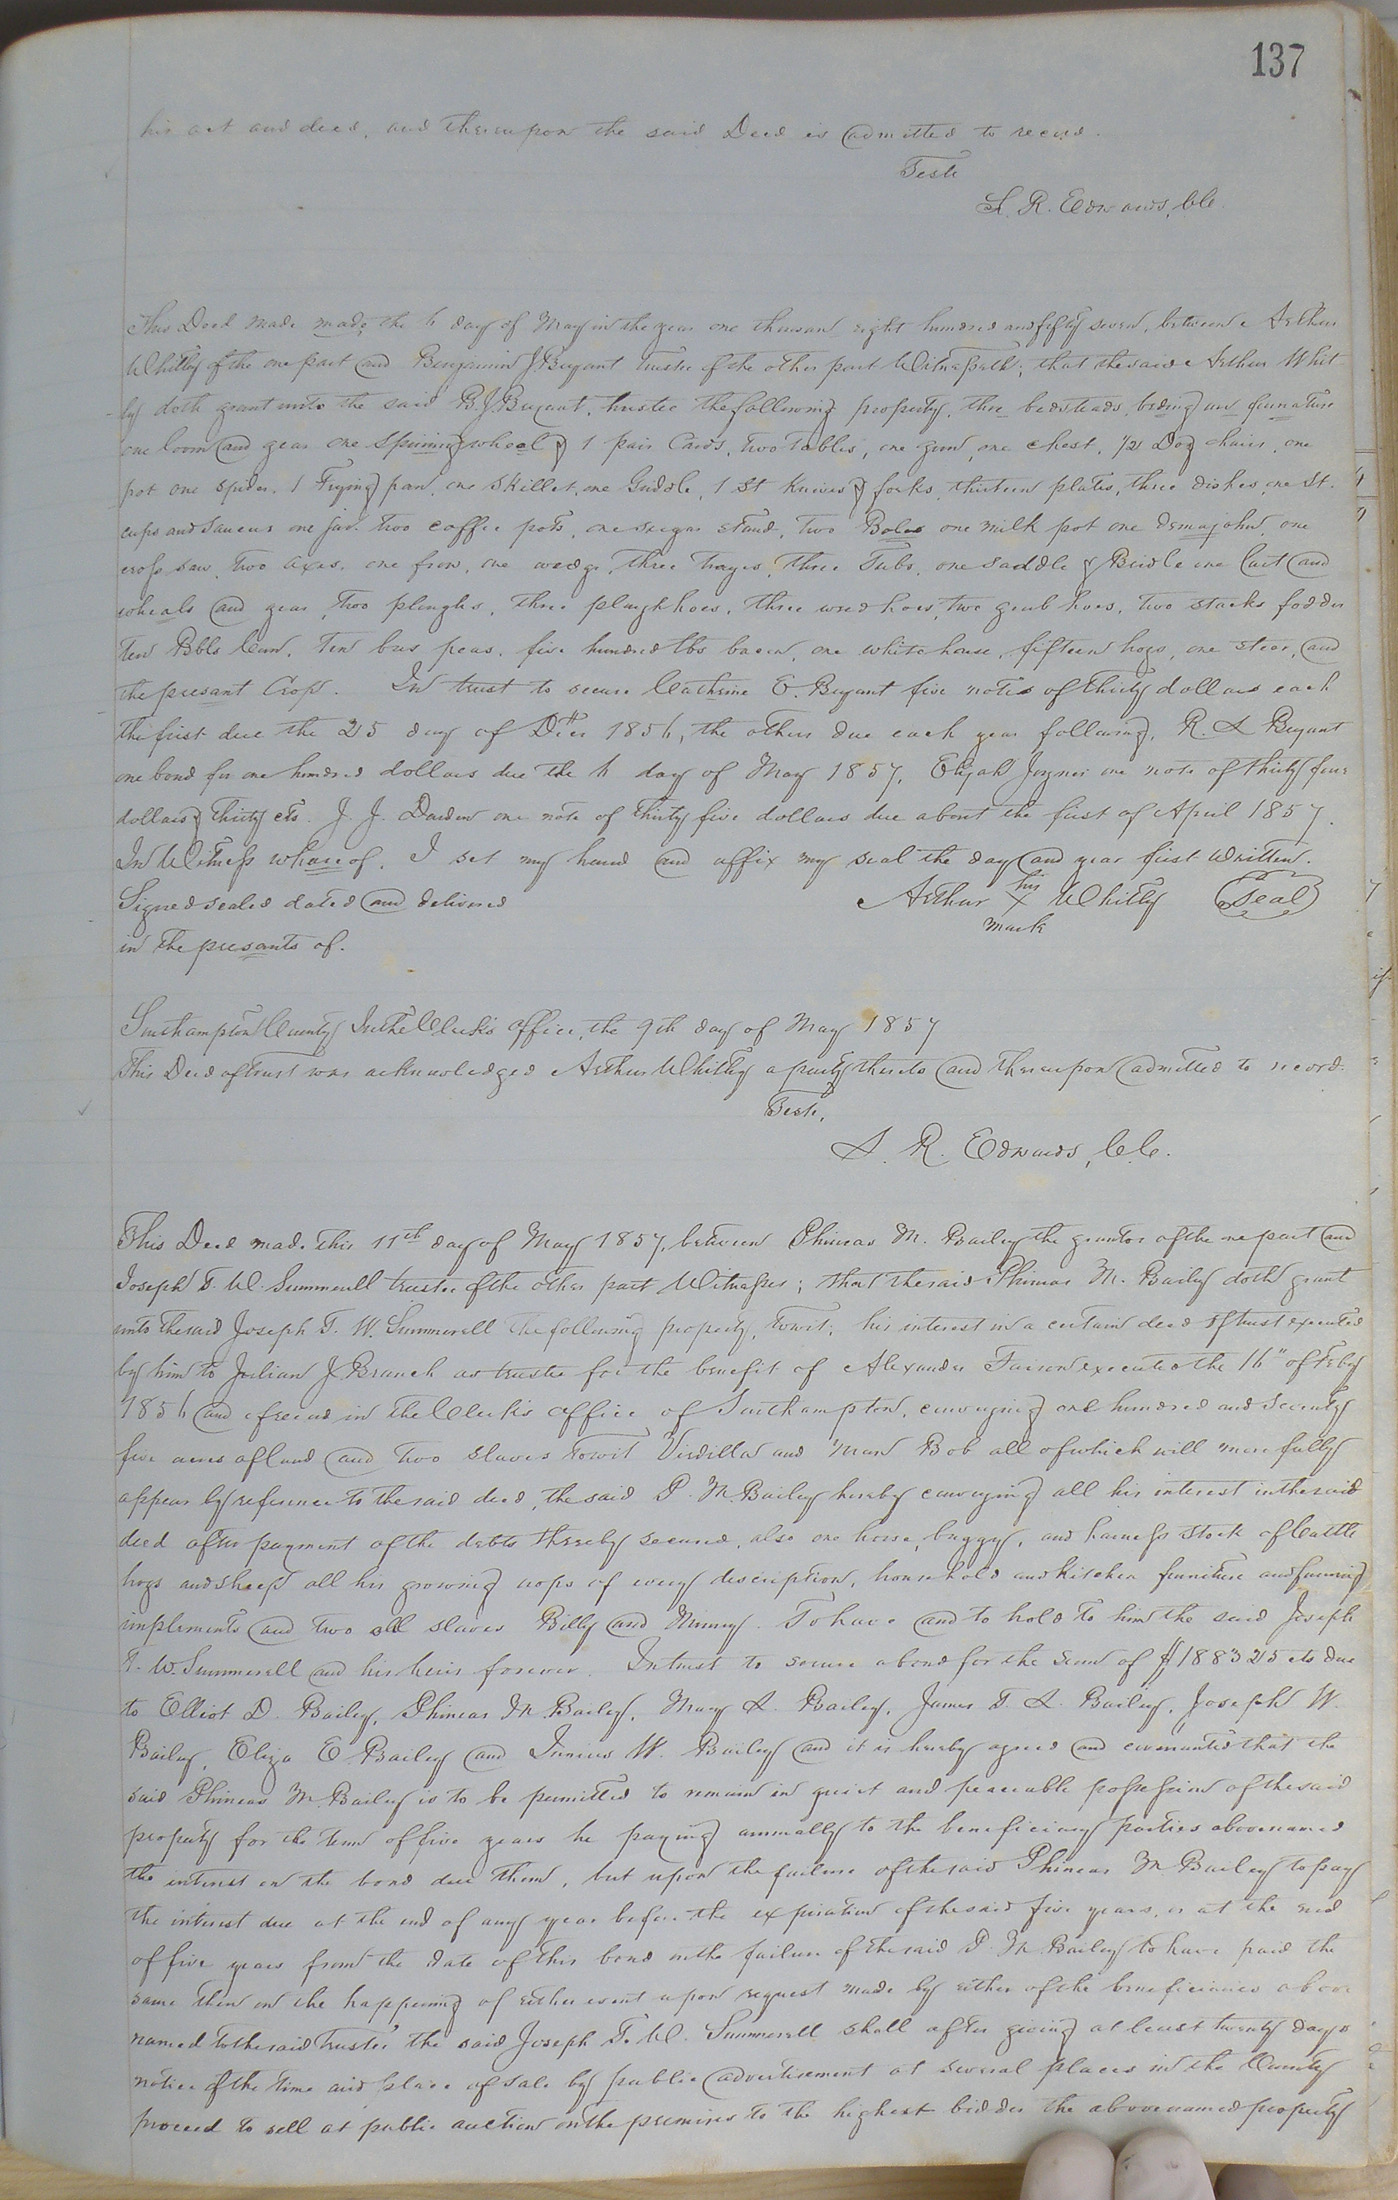 137
his act and deed, and thereupon the said Deed is admitted to record.
Teste
L. R. Edwards, CC.
This Deed made made the 6 day of May in the year one thousan eight hundred and fifty seven, between Arthur
Whitly of the one part and Benjamin J Bryant trustee of the other part Witnesseth; that the said Arthur Whit
ly doth grant unto the said B. J Bryant, trustee the following property, three bedsteads, beding and furnature
one loom and gear one spinning wheel & 1 pair Cards, two tables, one gun, one chest, 1/2 Doz chairs, one
pot one spider, 1 Frying pan, one Skillet, one Griddle, 1 St Knives & forks, thirteen plates, three dishes, one St.
cups and Saucers one jar, two coffee pots, one sugar stand, two Boles one milk pot one demajohn, one
cross saw, two axes, one frow, one wedge, three trayes, three Tubs, one saddle & Bridle one Cart and
wheals and gear, two ploughs, three ploughhoes, three weed hoes, two grub hoes, two stacks fodder
Ten Bbls Corn, ten bus peas, five hundred lbs bacon, one white horse, fifteen hogs, one steer, and
the presant Crop. In trust to secure Cathrine E. Bryant five notes of thirty dollars each
the first due the 25 day of Dcr 1856, the others due each year following, R. L Bryant
one bond for one hundred dollars due the 6 day of May 1857, Elijah Joyner one note of thirty four
dollars & thirty cts. J. J. Darden one note of thirty five dollars due about the first of April 1857.
In Witness whareof, I set my hand and affix my seal the day and year first written.
Signed sealed dated and delivered Arthur his X mark Whitly (Seal)
in the presants of.
Southampton County In the Clerk's office, the 9th day of May 1857
This Deed of trust was acknowledged Arthur Whitly a party thereto and thereupon admitted to record.
Teste,
L. R. Edwards, C.C.
This Deed made this 11th day of May 1857, between Phineas M. Bailey the grantor of the one part and
Joseph T. W. Summerell trustee of the other part Witnesses; that the said Phineas M. Baily doth grant
unto the said Joseph T. W. Summerell the following property, towit; his interest in a certain deed of trust executed
by him to Julian J Branch as trustee for the benefit of Alexander executed the 16" of Feby
1856 and of record in the Clerk's office of Southampton, conveying one hundred and seventy
five acres of land and two slaves towit Virdilla and man Bob all of which will more fully
appear by reference to the said deed, the said P. M. Bailey hereby conveying all his interest in the said
deed after payment of the debts thereby secured, also one horse, buggy, and harness stock of Cattle
hogs and sheep all his growing crops of every description, household and kitchen furniture and farming
implements and two slaves Billy and Ninny. To have and to hold to him the said Joseph
T. W. Summerell and his heirs forever. In trust to secure a bond for the sum of $1883 25 cts due
to Elliot D. Bailey, Phineas M. Bailey, Mary A. Bailey, James T. L. Bailey, Joseph W.
Bailey, Eliza E Bailey and Junius W. Bailey and it is hereby agreed and covenanted that the
said Phineas M. Bailey is to be permitted to remain in quiet and peaceable possession of the said
property for the term of five years he paying annually to the beneficiary parties abovenamed
the interest on the bond due them, but upon the failure of the said Phineas M Bailey to pay
the interest due at the end of any year before the expiration of the said five years, or at the end
of five years from the date of this bond on the failure of the said P. M Bailey to have paid the
same then on the happening of either event upon request made by either of the beneficiaries above
named to the said trustee the said Joseph T. W. Summerell shall after giving at least twenty days
notice of the time and place of sale by public advertisement at several places in the County
proceed to sell at public auction on the premises to the highest bidder the abovenamed property